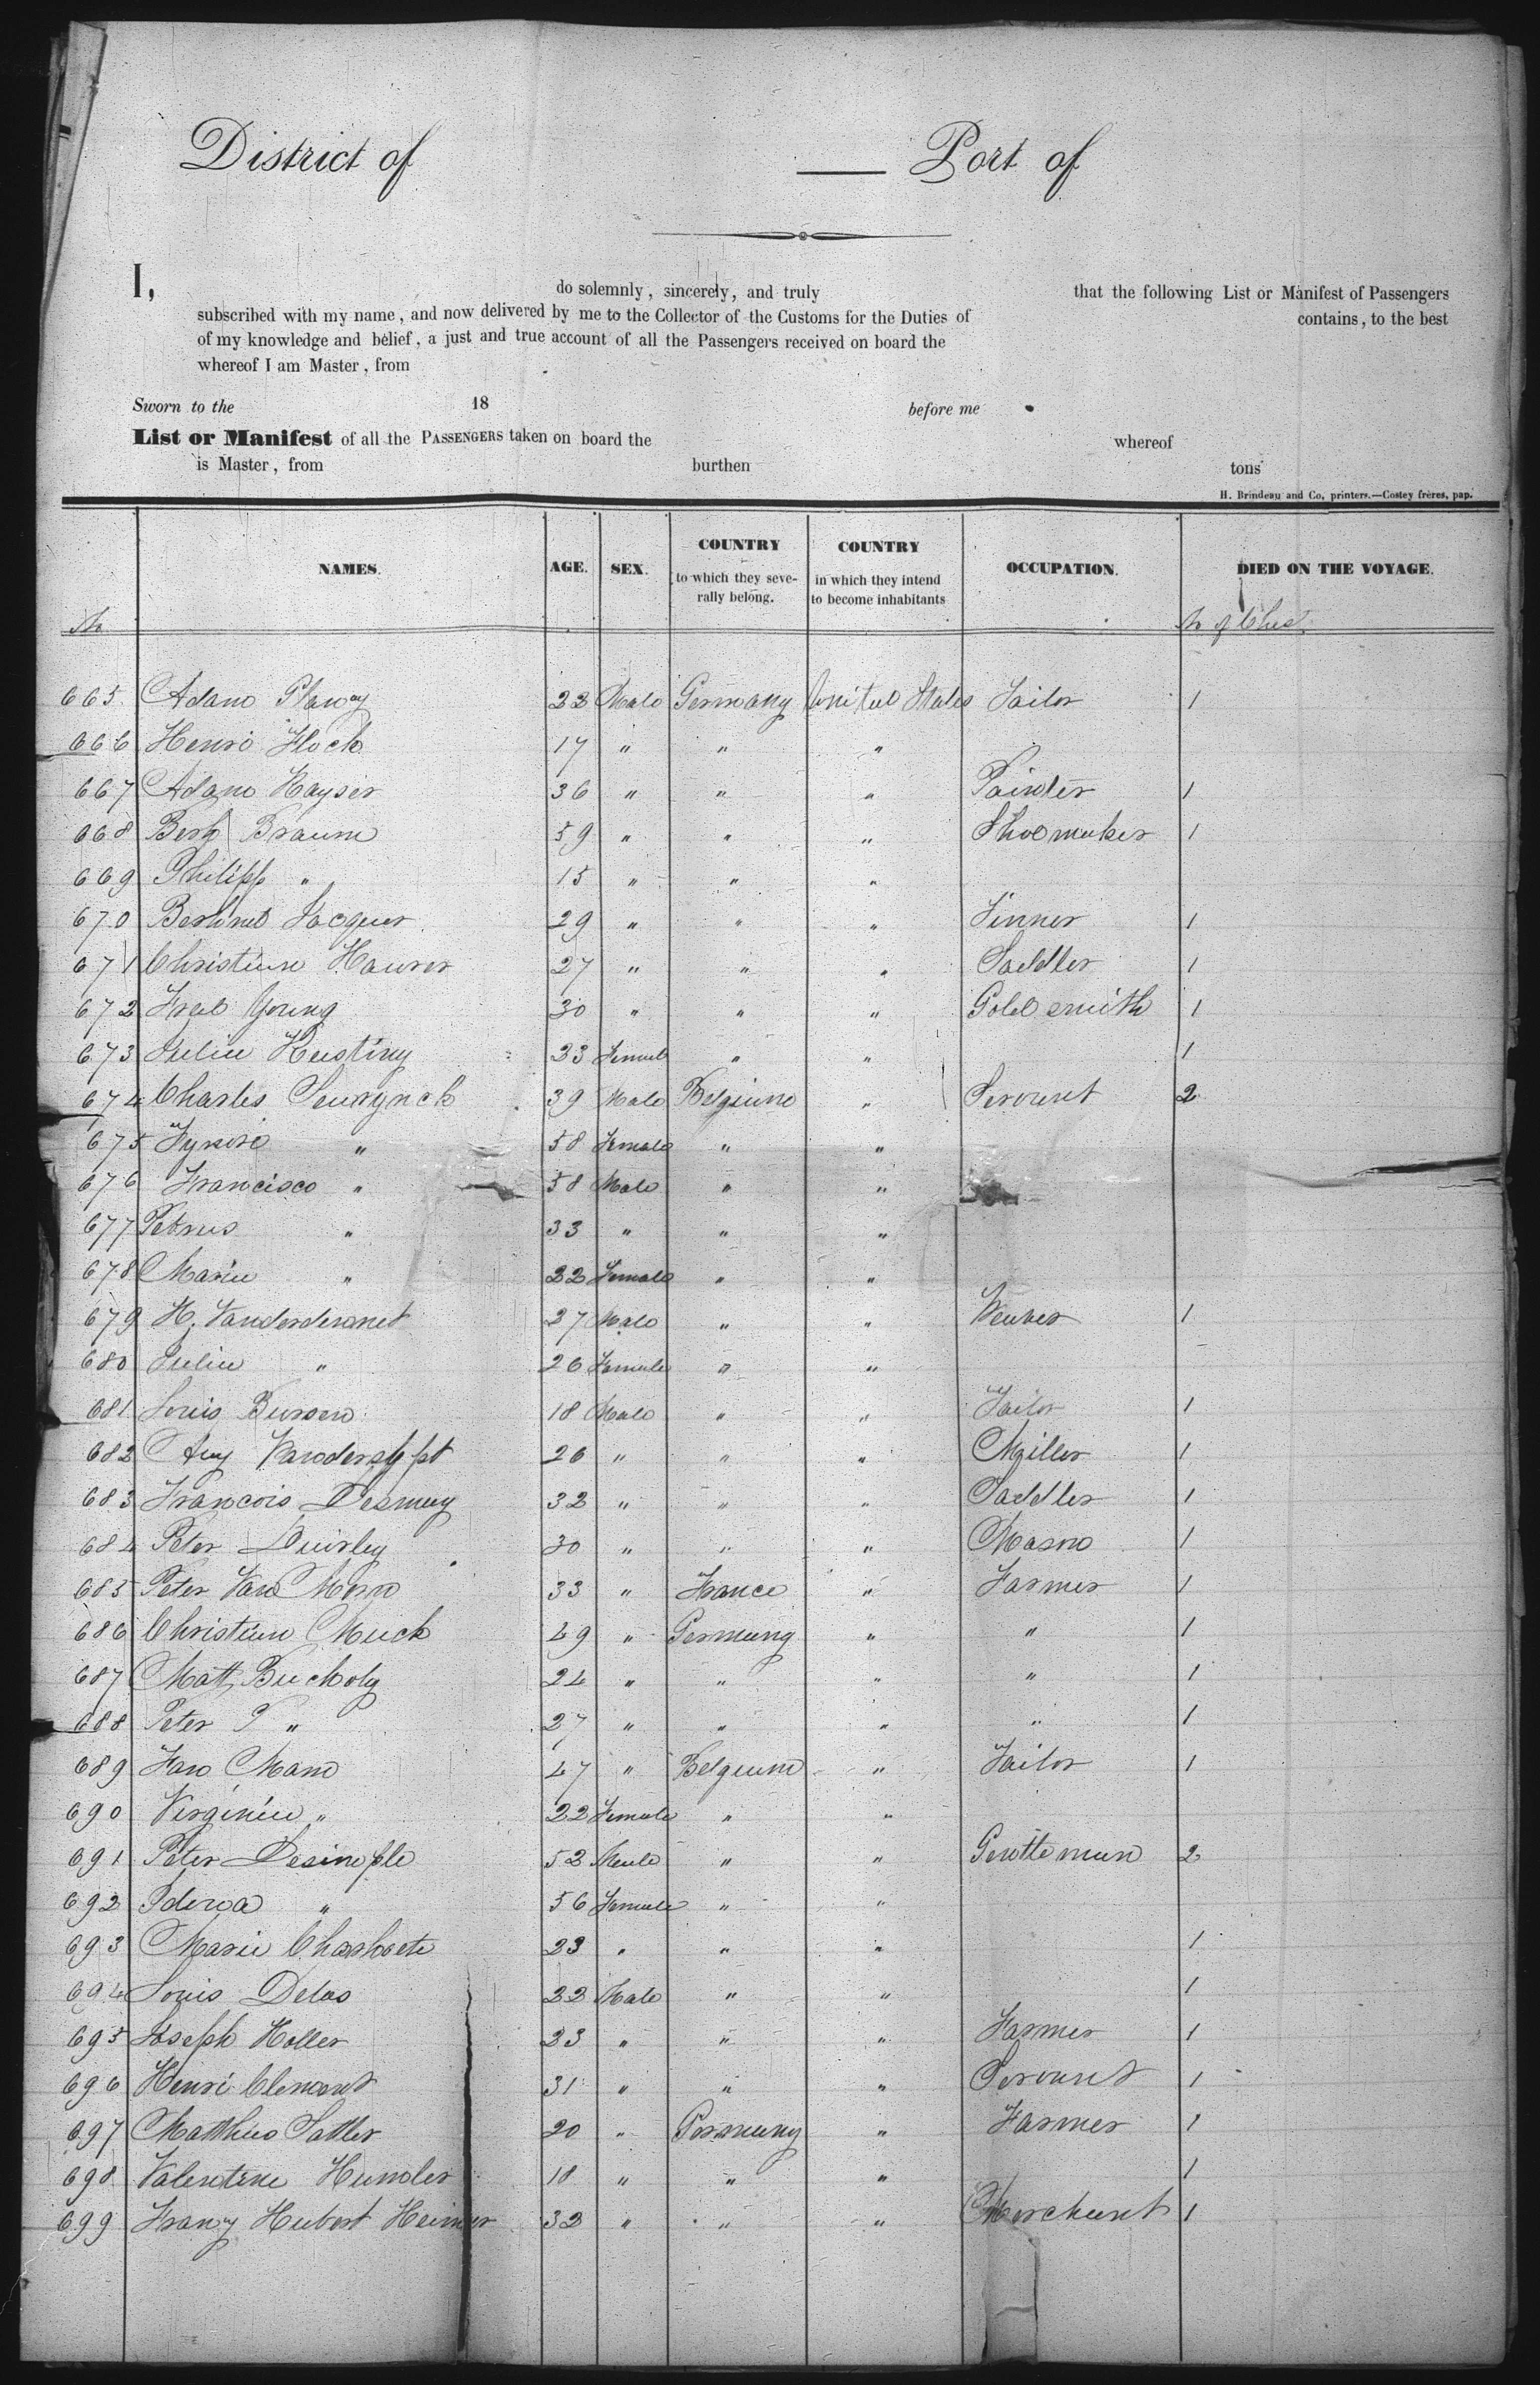 District of — Port of
I, do solemnly, sincerely, and truly that the following List or Manifest of Passengers
subscribed with my name, and now delivered by me to the Collector of the Customs for the Duties of contains, to the best
of my knowledge and belief, a just and true account of all the Passengers received on board the
whereof I am Master, from
Sworn to the 18 before me
List or Manifest of all the PASSENGERS taken on board the whereof
is Master, from burthen tons
H. Brindeau and Co, printers.—Costey frères, pap.
NAMES. AGE. SEX. COUNTRY to which they severally belong. COUNTRY in which they intend to become inhabitants OCCUPATION. DIED ON THE VOYAGE.
No No of Chest
665 Adam 22 Male Germany United States Tailor 1
666 Henri Flock 17 " " "
667 Adam Kayser 36 " " " Painter 1
668 Braum 59 " " " Shoemaker 1
669 Philipp " 15 " " "
670 Jacques 29 " " " Tinner 1
671 Christian Haurer 27 " " " Saddler 1
672 Fred Young 30 " " " Goldsmith 1
673 Julia 23 Female " " 1
674 Charles 39 Male Belgium " Servant 2
675 " 58 Female " "
676 Francisco " 58 Male " "
677 Petrus " 33 " " "
678 Maria " 22 Female " "
679 H. 27 Male " " Weaver 1
680 Julia " 26 Female " "
681 Louis 18 Male " " Tailor 1
682 Aug 26 " " " Miller 1
683 Francois 32 " " " Saddler 1
684 Peter 30 " " " Mason 1
685 Peter Van 33 " France " Farmer 1
686 Christian Muck 49 " Germany " " 1
687 Matt Bucholz 24 " " " " 1
688 Peter " 27 " " " " 1
689 Mann 47 " Belgium " Tailor 1
690 Virginia " 22 Female " "
691 Peter Desimple 52 Male " " Gentleman 2
692 " 56 Female " "
693 Marie 23 " " " 1
694 Louis Delas 22 Male " " 1
695 Joseph Holler 23 " " " Farmer 1
696 Henri Clement 31 " " " Servant 1
697 Mathias Sattler 20 " Germany " Farmer 1
698 Valentine 18 " " " 1
699 Franz Hubert 32 " " " Merchant 1